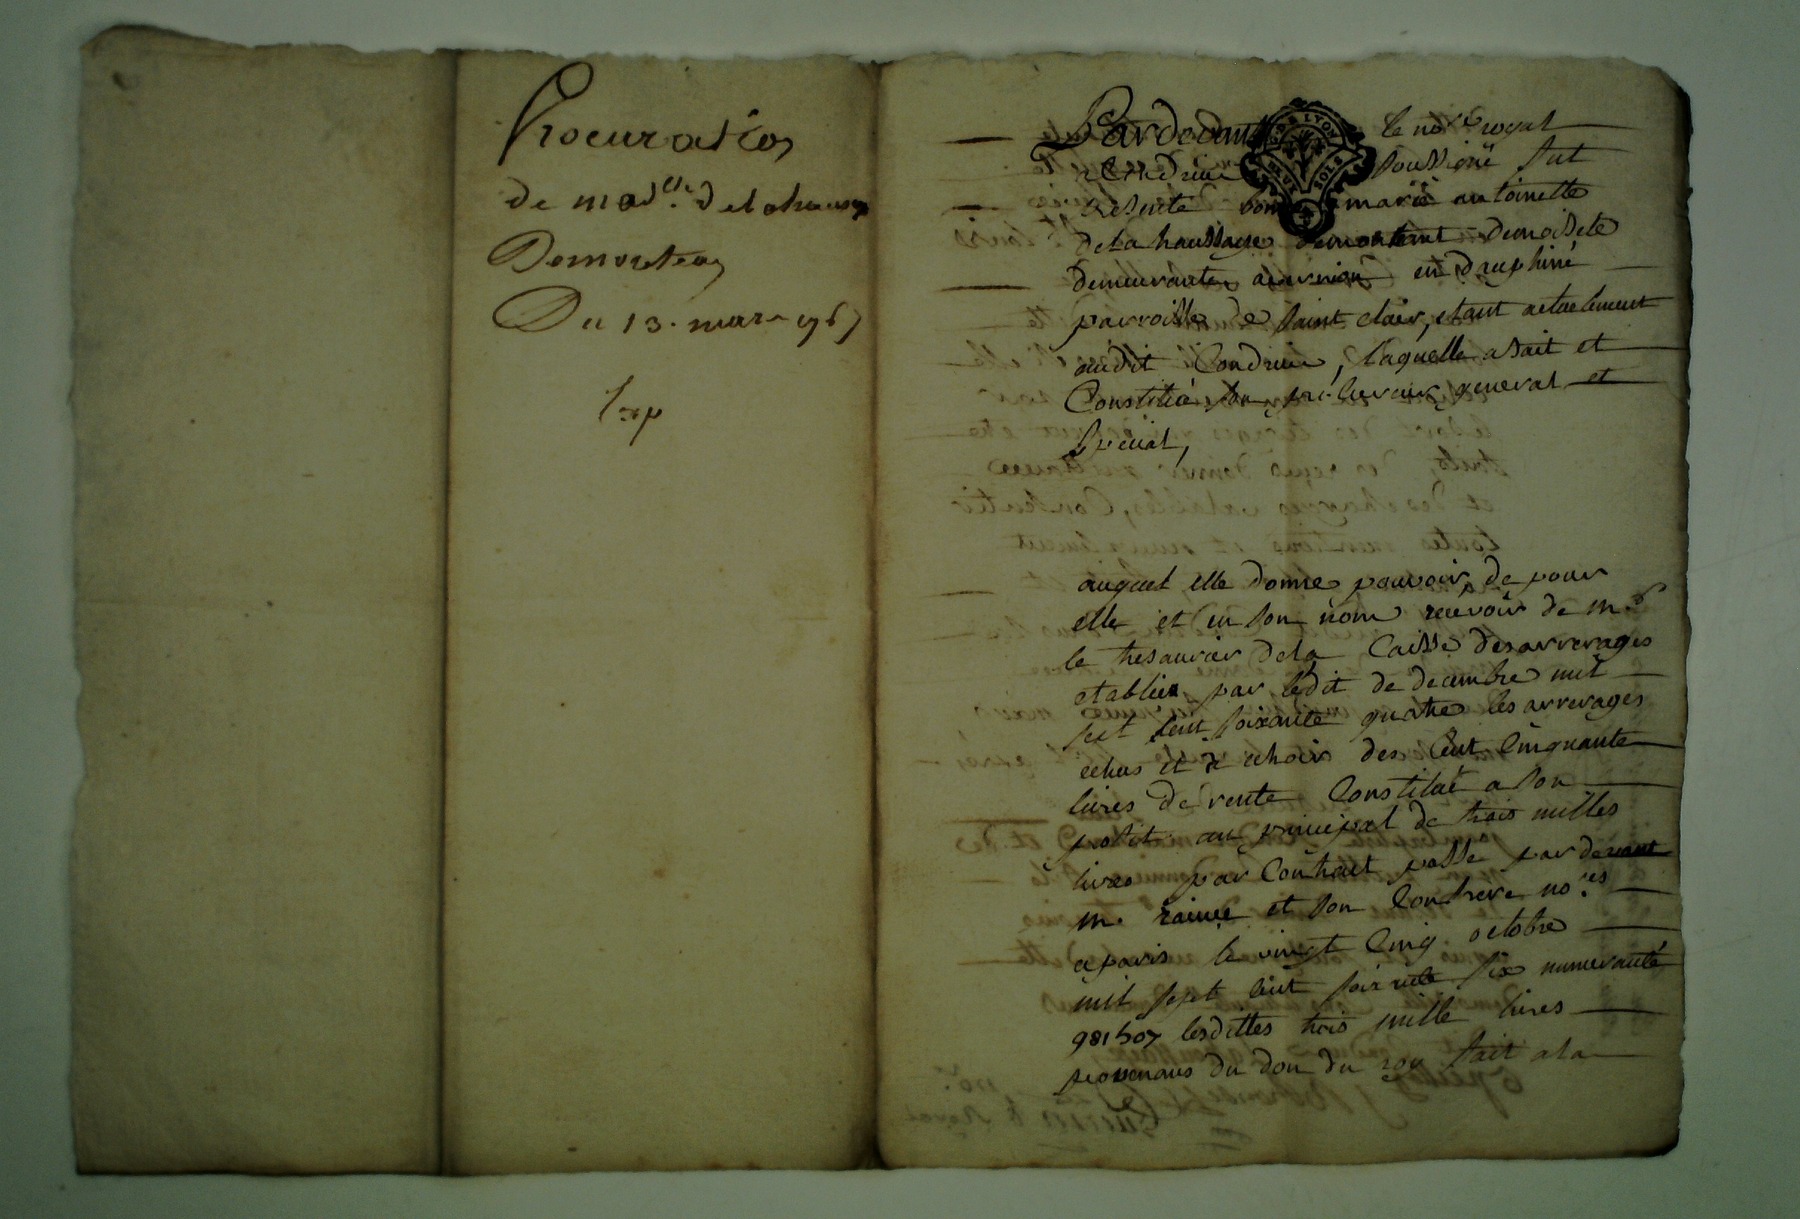 Procuration
de mad.lle delahaussaye
Demonteau
Du 13. mars 1767
Exp
Pardevant le no.re royal
a Condrieu soussigné fut
presente marie antoinette
dela haussaye demonteant demoiselle
demeurante en dauphiné
parroisse de saint clair, etant actuelement
audit Condrieu, laquelle a fait et
Constitué son procureur general et
special,
auquel elle donne pouvoir de pour
elle et en son nom recevoir de m.r
le thesaurier dela Caisse desarrerages
etablie par ledit de decembre mil
sept cent soixante quatre les arrerages
echus et a echoir des Cent Cinquante
livres de rente Constitué a son
profit au principal de trois milles
livres par Contrait passé par devant
m. et son Confrere no.res
a paris le vingt Cinq octobre
mil sept cent soixante six numeroté
981507 lesdittes trois mille livres
provenans du don du roy fait a la
DE LYON
DEUX SOLS